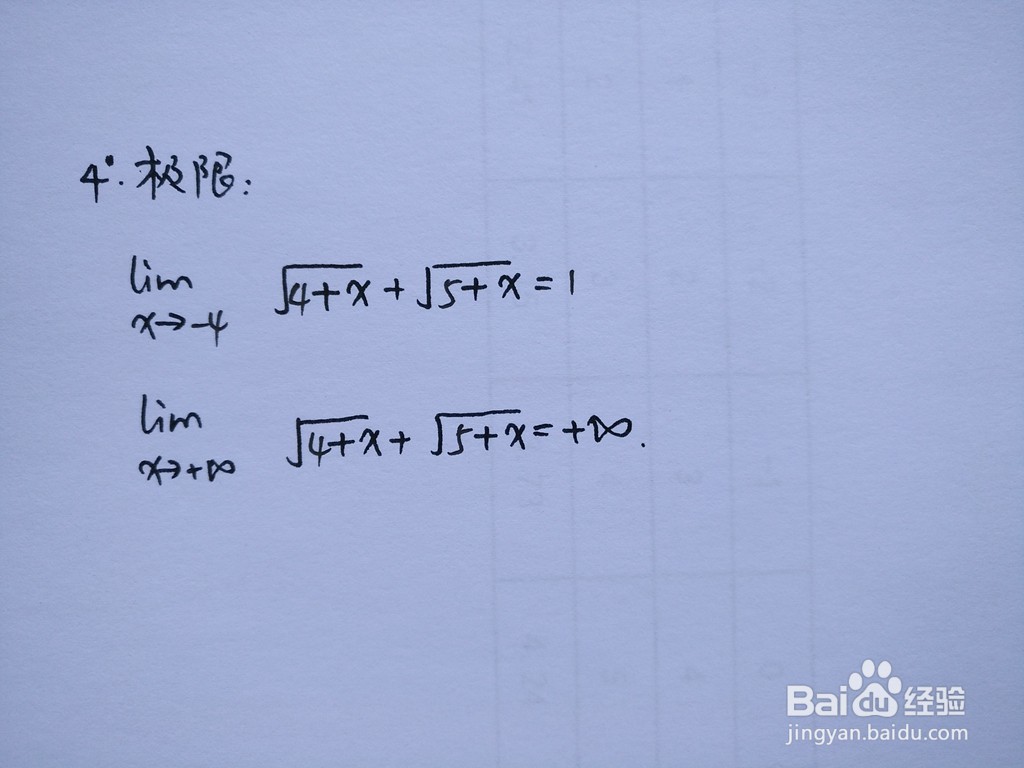 4°. 极限:
lim √4+x + √5+x = 1
x→-4
lim √4+x + √5+x = +∞.
x→+∞
Bai 经验
jingyan.baidu.com